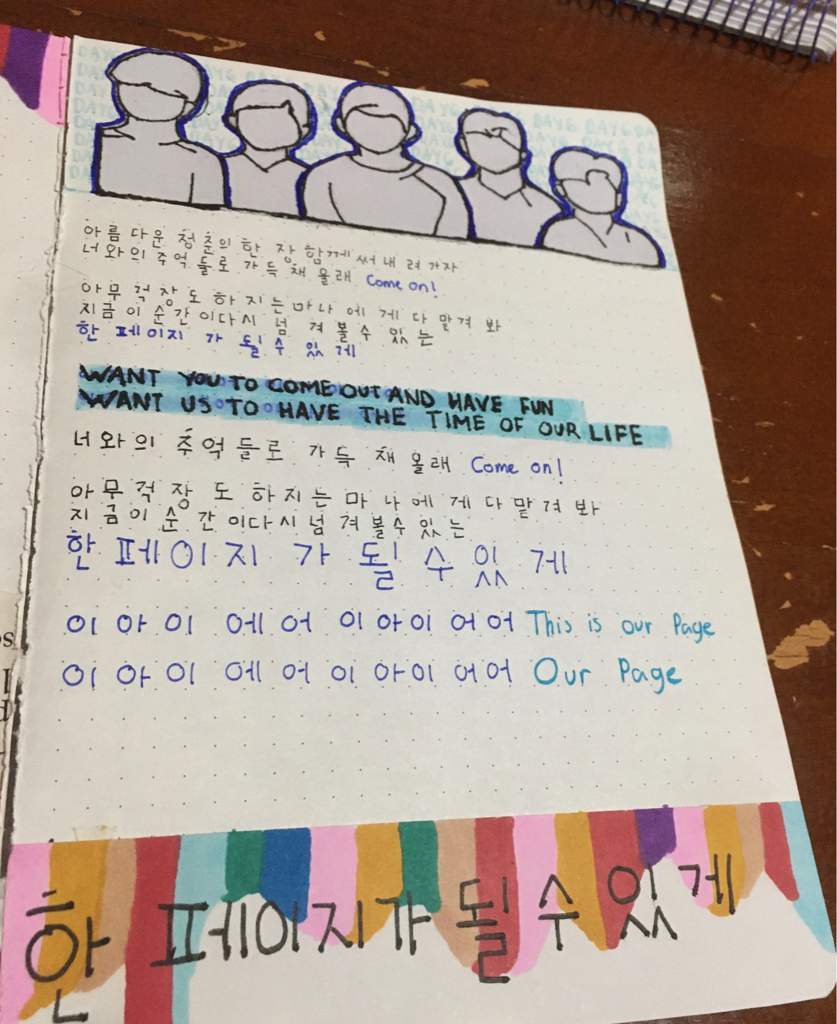 DAY6 DAY6 DAY6 DAY6
아름다운 청춘의 한 장 함께 써 내려가자
너와의 추억들로 가득 채울래 Come on!
아무 걱정도 하지는 마 나에게 다 맡겨 봐
지금 이 순간이 다시 넘겨볼 수 있는
한 페이지가 될 수 있게
WANT YOU TO COME OUT AND HAVE FUN
WANT US TO HAVE THE TIME OF OUR LIFE
너와의 추억들로 가득 채울래 Come on!
아무 걱장도 하지는 마 나에게 다 맡겨 봐
지금 이 순간이 다시 넘겨볼 수 있는
한 페이지가 될 수 있게
이 아 이 에 어 이 아 이 어 어 This is our Page
이 아 이 에 어 이 아 이 어 어 Our Page
한 페이지가 될 수 있게